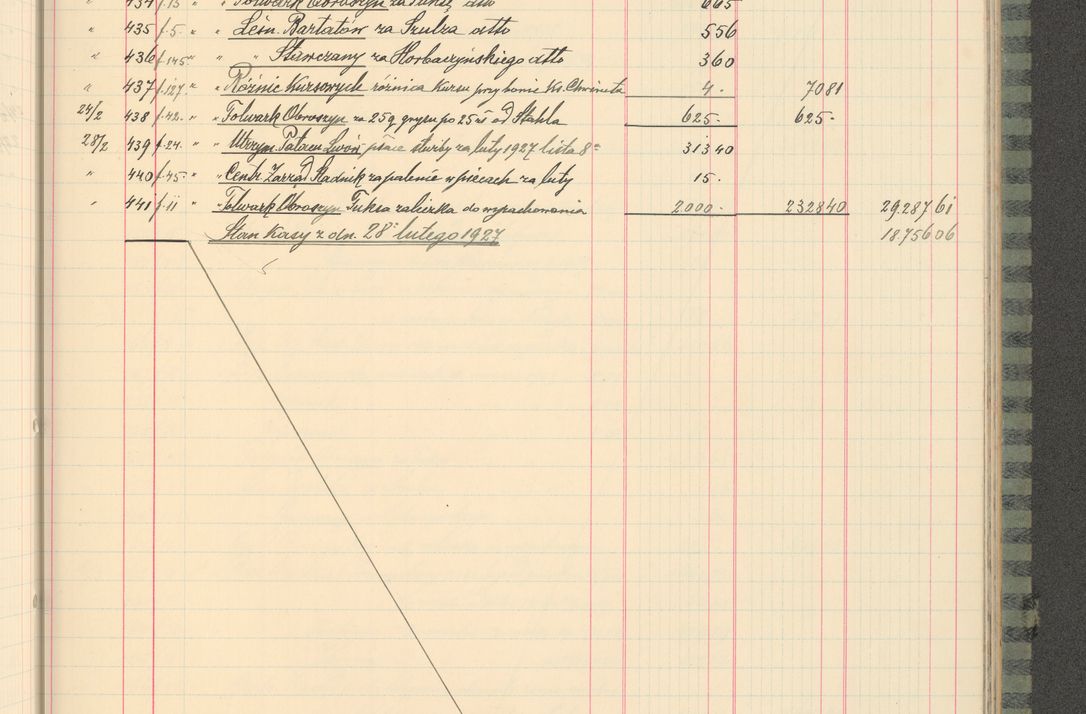 434 f.13 " " Folwark Obroszyn za Fuksę dtto 665
" 435 f.5. " " Leśn. Bartatów za Szulza dtto 556
" 436 f.145 " " " Stawczany za Horbaczyńskiego dtto 360
" 437 f.127. " " Różnic Kursowych różnica kursu przy bonie Ks. 4. 7081
24/2 438 f.42. " " Folwark Obroszyn za 25 q grysu po 25 zł od Stahla 625. 625.
28/2 439 f.24. " " Utrzym. Pałacu Lwów płace służby za luty 1927 lista 8 313 40
" 440 f.45. " " Centr. Zarząd Radnik za palenie w piecach za luty 15.
" 441 f.11 " Folwark Obroszyn Fuksa zaliczka do wyrachowania 2000. 2328 40 29.287 61
Stan Kasy z dn. 28 lutego 1927 18.756 06